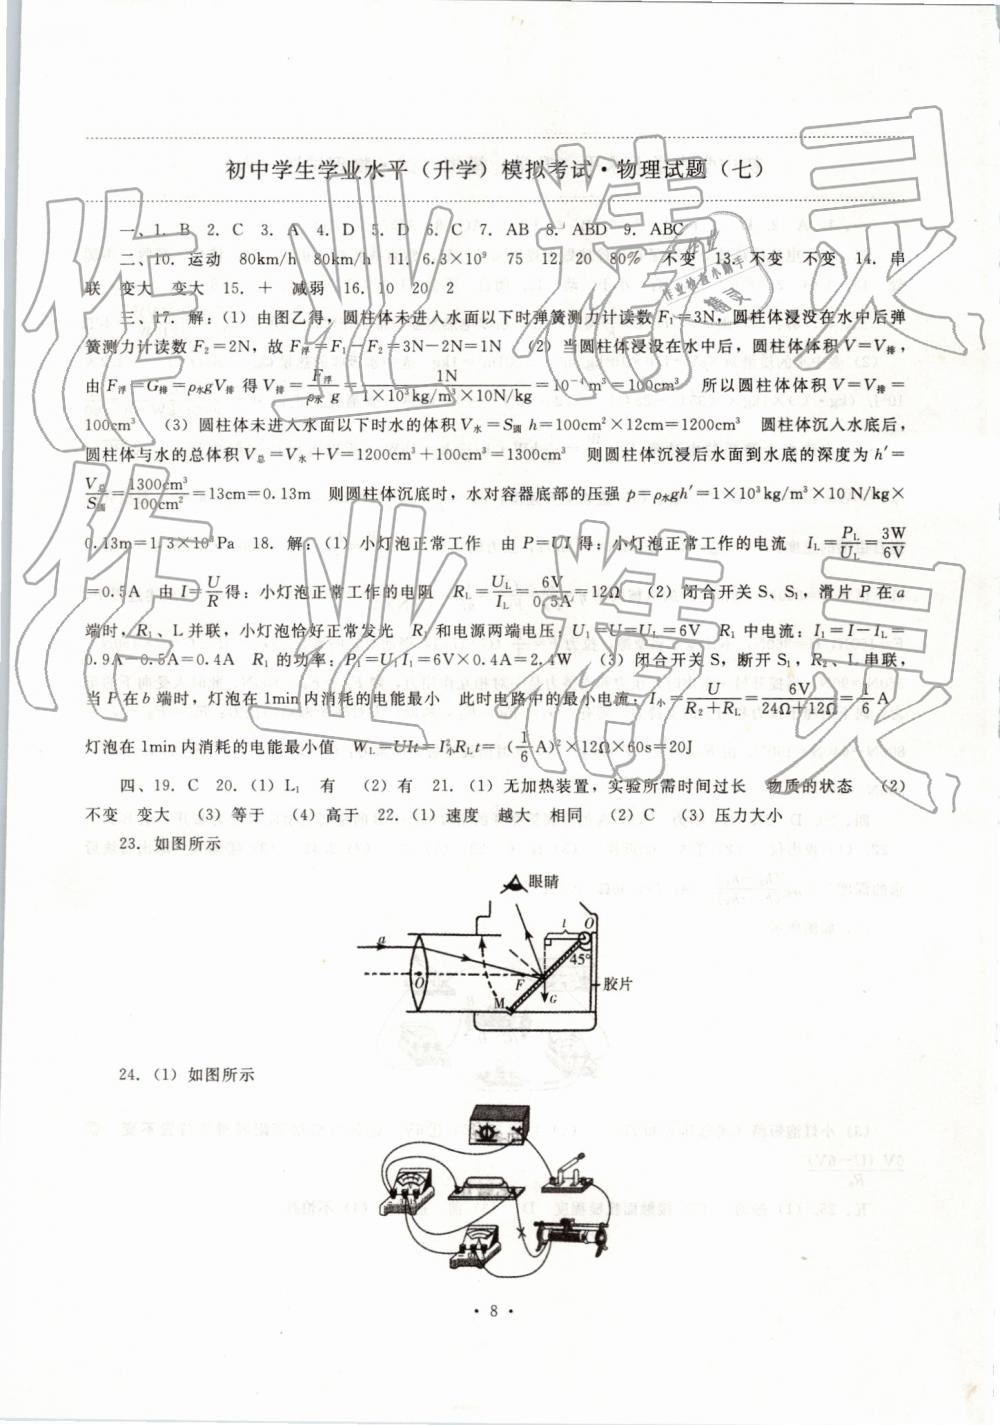 初中学生学业水平（升学）模拟考试·物理试题（七）
一、1. B 2. C 3. A 4. D 5. D 6. C 7. AB 8. ABD 9. ABC
二、10. 运动 80km/h 80km/h 11. 6.3×10⁹ 75 12. 20 80% 不变 13. 不变 不变 14. 串
联 变大 变大 15. ＋ 减弱 16. 10 20 2
三、17. 解：(1) 由图乙得，圆柱体未进入水面以下时弹簧测力计读数 F₁=3N，圆柱体浸没在水中后弹
簧测力计读数 F₂=2N，故 F浮=F₁-F₂=3N-2N=1N (2) 当圆柱体浸没在水中后，圆柱体体积 V=V排，
由 F浮=G排=ρ水gV排 得 V排=F浮/ρ水g=1N/1×10³kg/m³×10N/kg=10⁻⁴m³=100cm³ 所以圆柱体体积 V=V排=
100cm³ (3) 圆柱体未进入水面以下时水的体积 V水=S圆 h=100cm²×12cm=1200cm³ 圆柱体沉入水底后，
圆柱体与水的总体积 V总=V水+V=1200cm³+100cm³=1300cm³ 则圆柱体沉浸后水面到水底的深度为 h′=
V总/S圆=1300cm³/100cm²=13cm=0.13m 则圆柱体沉底时，水对容器底部的压强 p=ρ水gh′=1×10³kg/m³×10 N/kg×
0.13m=1.3×10³Pa 18. 解：(1) 小灯泡正常工作 由 P=UI 得：小灯泡正常工作的电流 I_L=P_L/U_L=3W/6V
=0.5A 由 I=U/R得：小灯泡正常工作的电阻 R_L=U_L/I_L=6V/0.5A=12Ω (2) 闭合开关 S、S₁，滑片 P 在 a
端时，R₁、L 并联，小灯泡恰好正常发光 R₁ 和电源两端电压：U₁=U=U_L=6V R₁ 中电流：I₁=I-I_L=
0.9A-0.5A=0.4A R₁ 的功率：P₁=U₁I₁=6V×0.4A=2.4W (3) 闭合开关 S，断开 S₁，R₂、L 串联，
当 P 在 b 端时，灯泡在 1min 内消耗的电能最小 此时电路中的最小电流：I小=U/R₂+R_L=6V/24Ω+12Ω=1/6A
灯泡在 1min 内消耗的电能最小值 W_L=UIt=I²小R_Lt=(1/6A)²×12Ω×60s=20J
四、19. C 20. (1) L₁ 有 (2) 有 21. (1) 无加热装置，实验所需时间过长 物质的状态 (2)
不变 变大 (3) 等于 (4) 高于 22. (1) 速度 越大 相同 (2) C (3) 压力大小
23. 如图所示
眼睛
a
l
O
45°
O
F
G
M
胶片
24. (1) 如图所示
· 8 ·
作业精灵
作业精灵